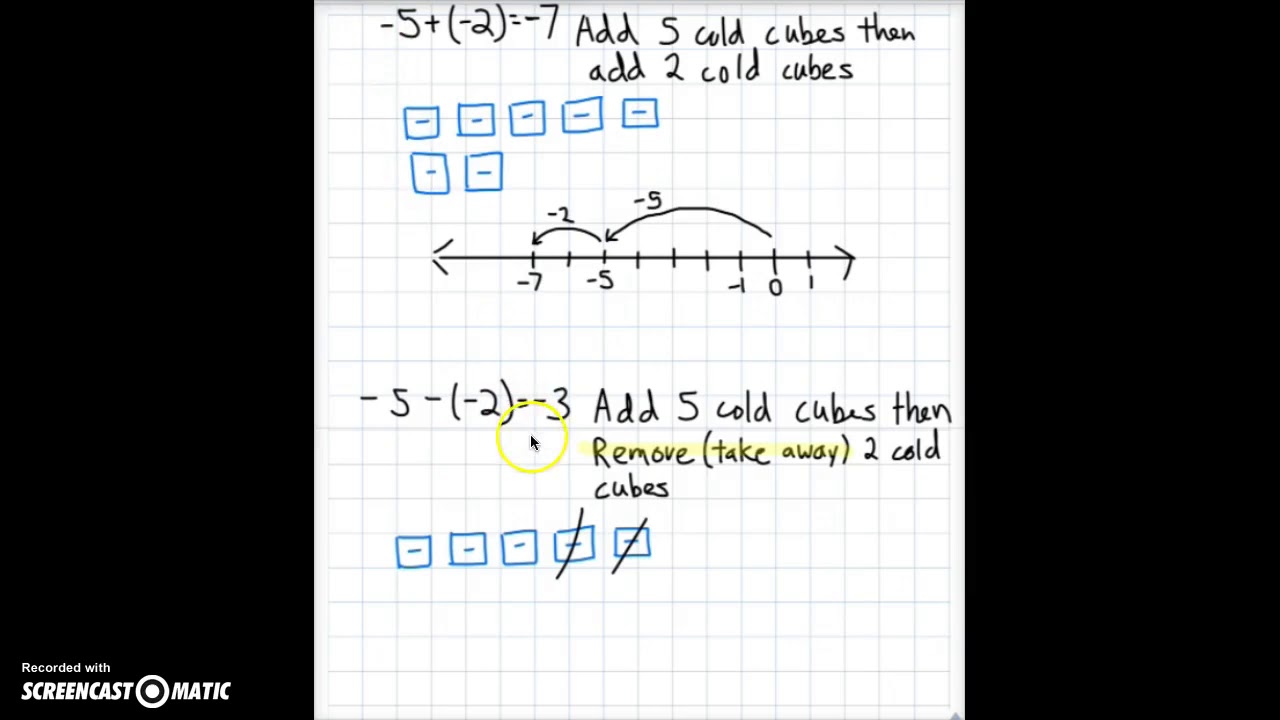 -5+(-2)=-7 Add 5 cold cubes then
add 2 cold cubes
- - - - -
- -
-2 -5
-7 -5 -1 0 1
-5-(-2)=-3 Add 5 cold cubes then
Remove (take away) 2 cold
cubes
- - - - -
Recorded with
SCREENCAST-O-MATIC